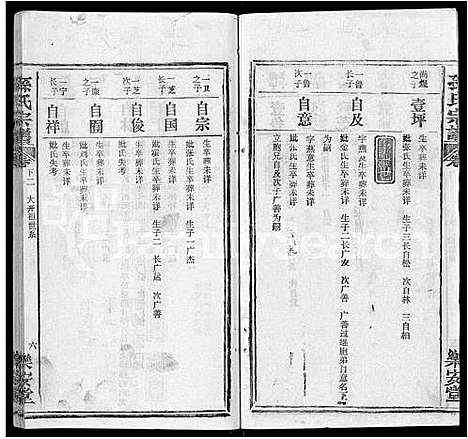 孫氏宗譜
卷
樂安堂
尚焜之子
壹坪
生卒葬未详
妣氏生卒葬未详 生子三 长自松 次自林 三自相
一鲁长子
自及
字 生卒葬未详
妣金氏生卒葬未详 生子二 长广友 次广善 广善过继胞弟自意名下
一鲁次子
自意
字燕意生卒葬未详
妣张氏生卒葬未详
立胞兄自及次子广善为嗣
一卫之子
自宗
生卒葬未详
妣张氏生卒葬未详 生子一广杰
一芝长子
自国
生卒葬未详
妣崔氏生卒葬未详 生子二 长广运 次广善
一芝次子
自俊
生卒葬未详
妣氏失考
一荣之子
自囿
生卒葬未详
妣刘氏生卒葬未详
一宁长子
自祥
生卒葬未详
妣氏失考
孫氏宗譜
卷下二
大齐祖世系
六
樂安堂